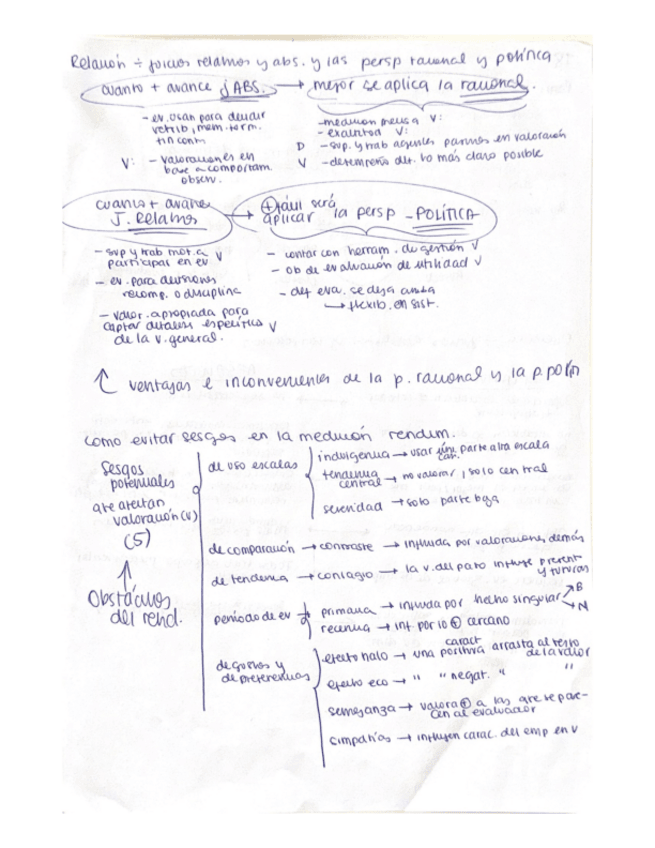 Relación ÷ juicios relativos y abs. y las persp racional y política
cuanto + avance j ABS. → mejor se aplica la racional.
- ev. usan para decidir
retrib, mem. term.
fin cont.
V: - valoraciones en
base a comportam.
observ.
- medición precisa V:
- exactitud V:
D - sup. y trab agentes pasivos en valoración
V - desempeño def. lo más claro posible
cuanto + avance
J. Relativos → ⊕ fácil será
aplicar la persp - POLÍTICA
- sup y trab mot. a V
participar en ev
- ev. para decisiones
recomp. o disciplina
- valor. apropiada para
captar detalles específica V
de la v. general.
- contar con herram. de gestión V
- ob de evaluación de utilidad V
- def eva. se deja
→ flexib. en sist.
↑ ventajas e inconvenientes de la p. racional y la p. polín
como evitar sesgos en la medición rendim.
Sesgos
potenciales
que afectan
valoración (V)
(5)
↑
Obstáculos
del rend.
de uso escalas
indulgencia → usar parte alta escala
tendencia
central → no valorar, solo central
severidad → solo parte baja
de comparación → contraste → influida por valoraciones demás
de tendencia → contagio → la v. del pato influye present
y futuras
periodo de ev
primacia → influida por hecho singular → B
→ N
recencia → inf. por lo ⊕ cercano
de gustos y
de preferencias
efecto halo → una caract positiva arrastra al resto
de la valor
efecto eco → " " negat. " "
semejanza → valora ⊕ a los que se pare-
cen al evaluador
simpatías → influyen carac. del emp en V